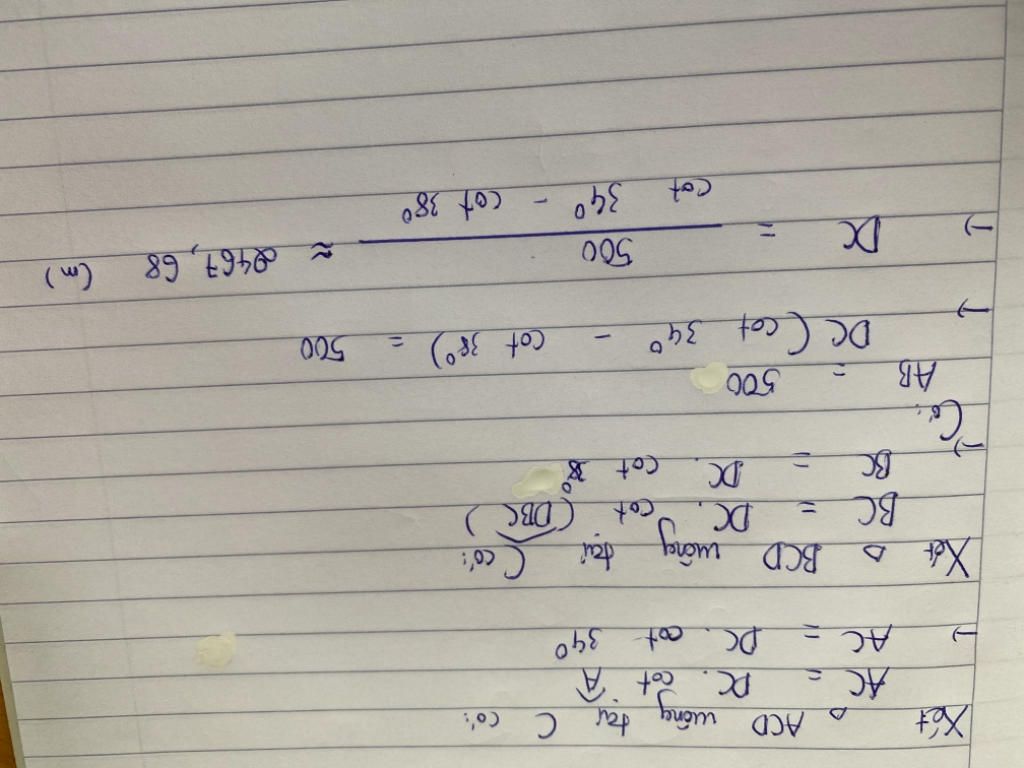 Xét △ ACD vuông tại C có:
AC = DC. cot Â
→ AC = DC. cot 34°
Xét △ BCD vuông tại C có:
BC = DC. cot (DBC)
→ BC = DC. cot 38°
Có:
AB = 500
→ DC (cot 34° - cot 38°) = 500
→ DC = 500 / cot 34° - cot 38° ≈ 2467,68 (m)